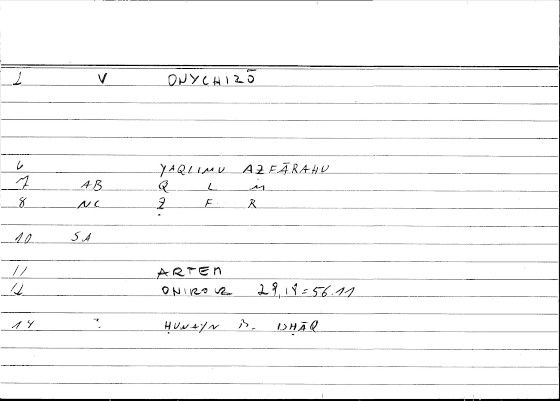 1 V ONYCHIZŌ
6 YAQLIMU AẒFĀRAHU
7 AB Q L M
8 NC Ẓ F R
10 SA
11 ARTEM
12 ONIROCR
14 ḤUNAYN B. ISḤĀQ